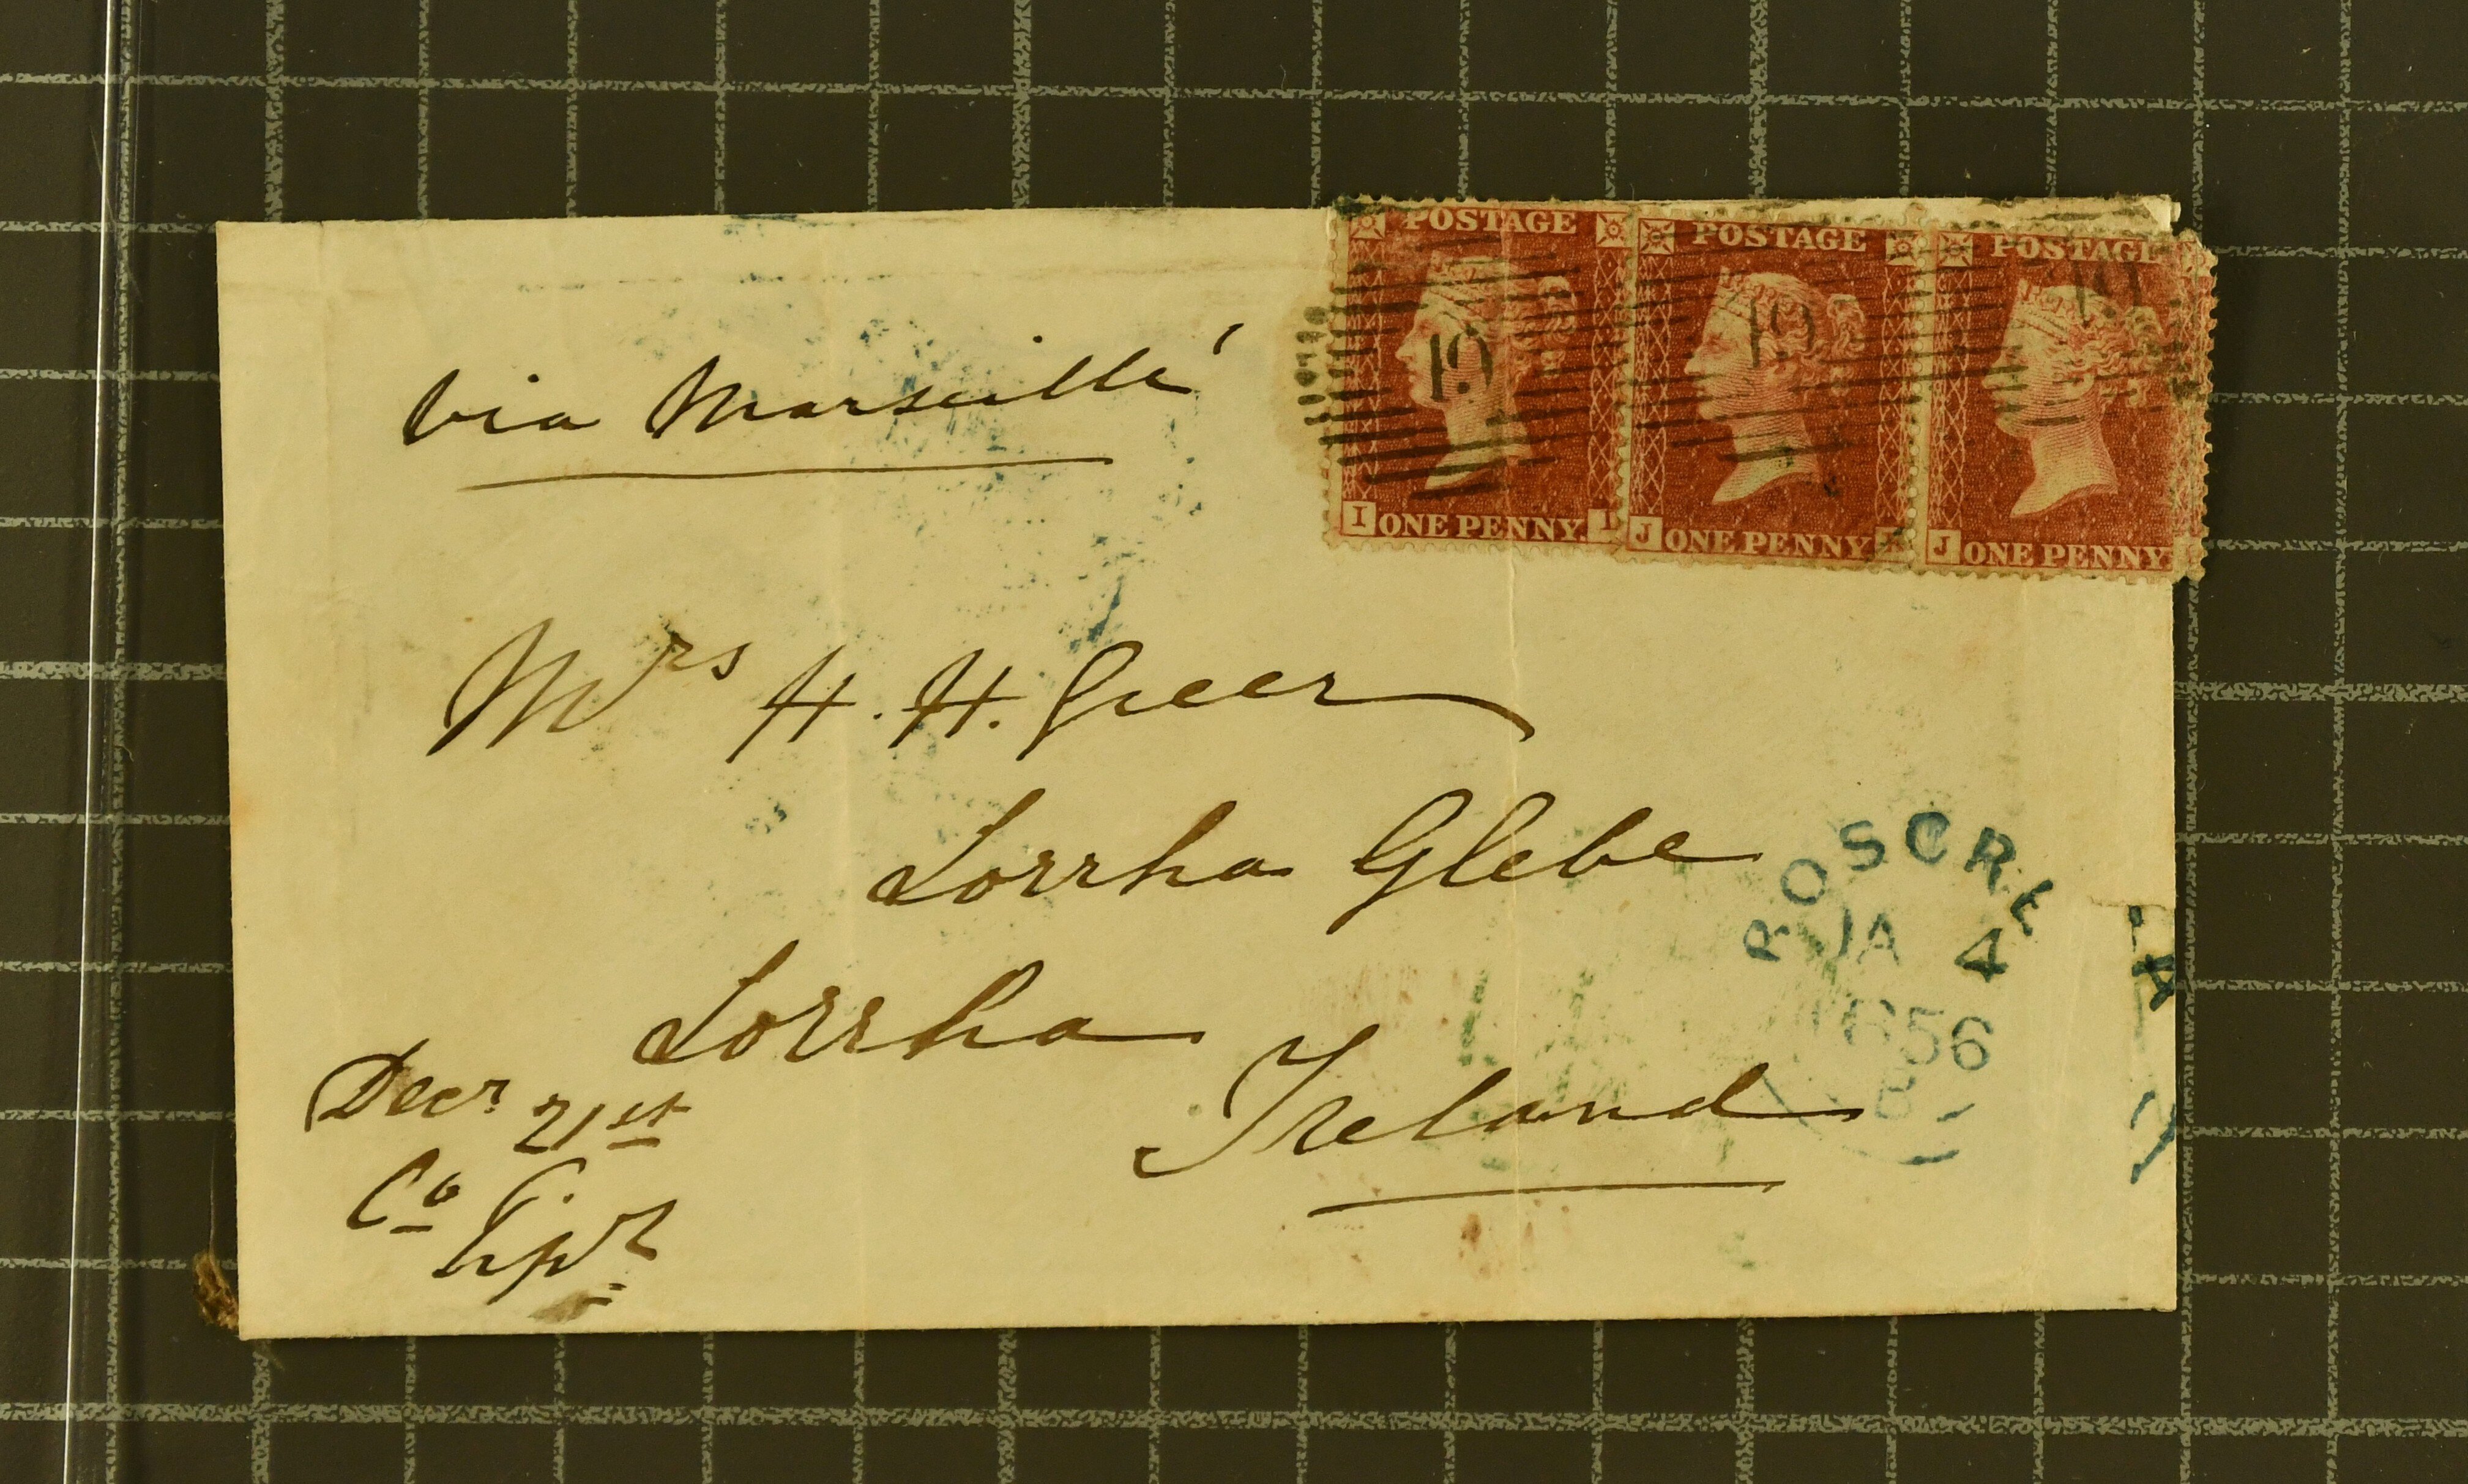 POSTAGE POSTAGE POSTAGE
19 19 19
I ONE PENNY. J ONE PENNY J ONE PENNY
via Marseille
Mrs H. H. Greer
Lorrha Glebe
Lorrha
Ireland
Decr 21st
Co Tipr
ROSCRE
JA 4
1856